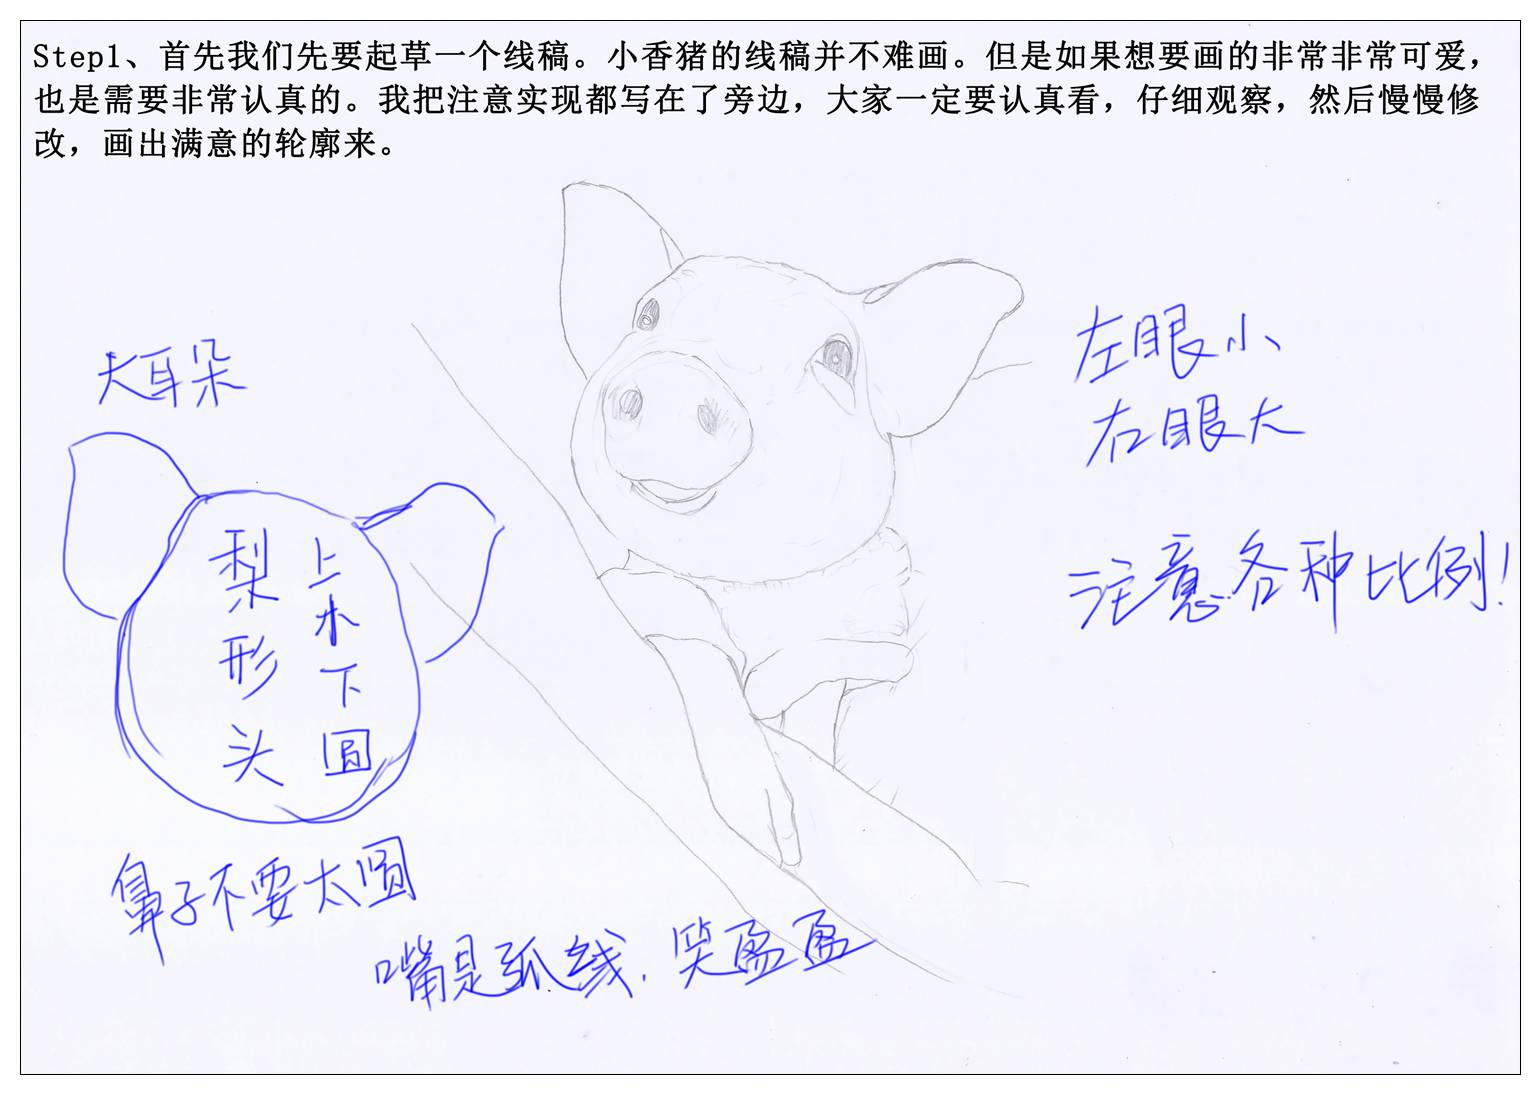 Step1、首先我们先要起草一个线稿。小香猪的线稿并不难画。但是如果想要画的非常非常可爱，
也是需要非常认真的。我把注意实现都写在了旁边，大家一定要认真看，仔细观察，然后慢慢修
改，画出满意的轮廓来。
大耳朵
左眼小
右眼大
梨形头
上小下圆
注意各种比例！
鼻子不要太圆
嘴是弧线，笑盈盈